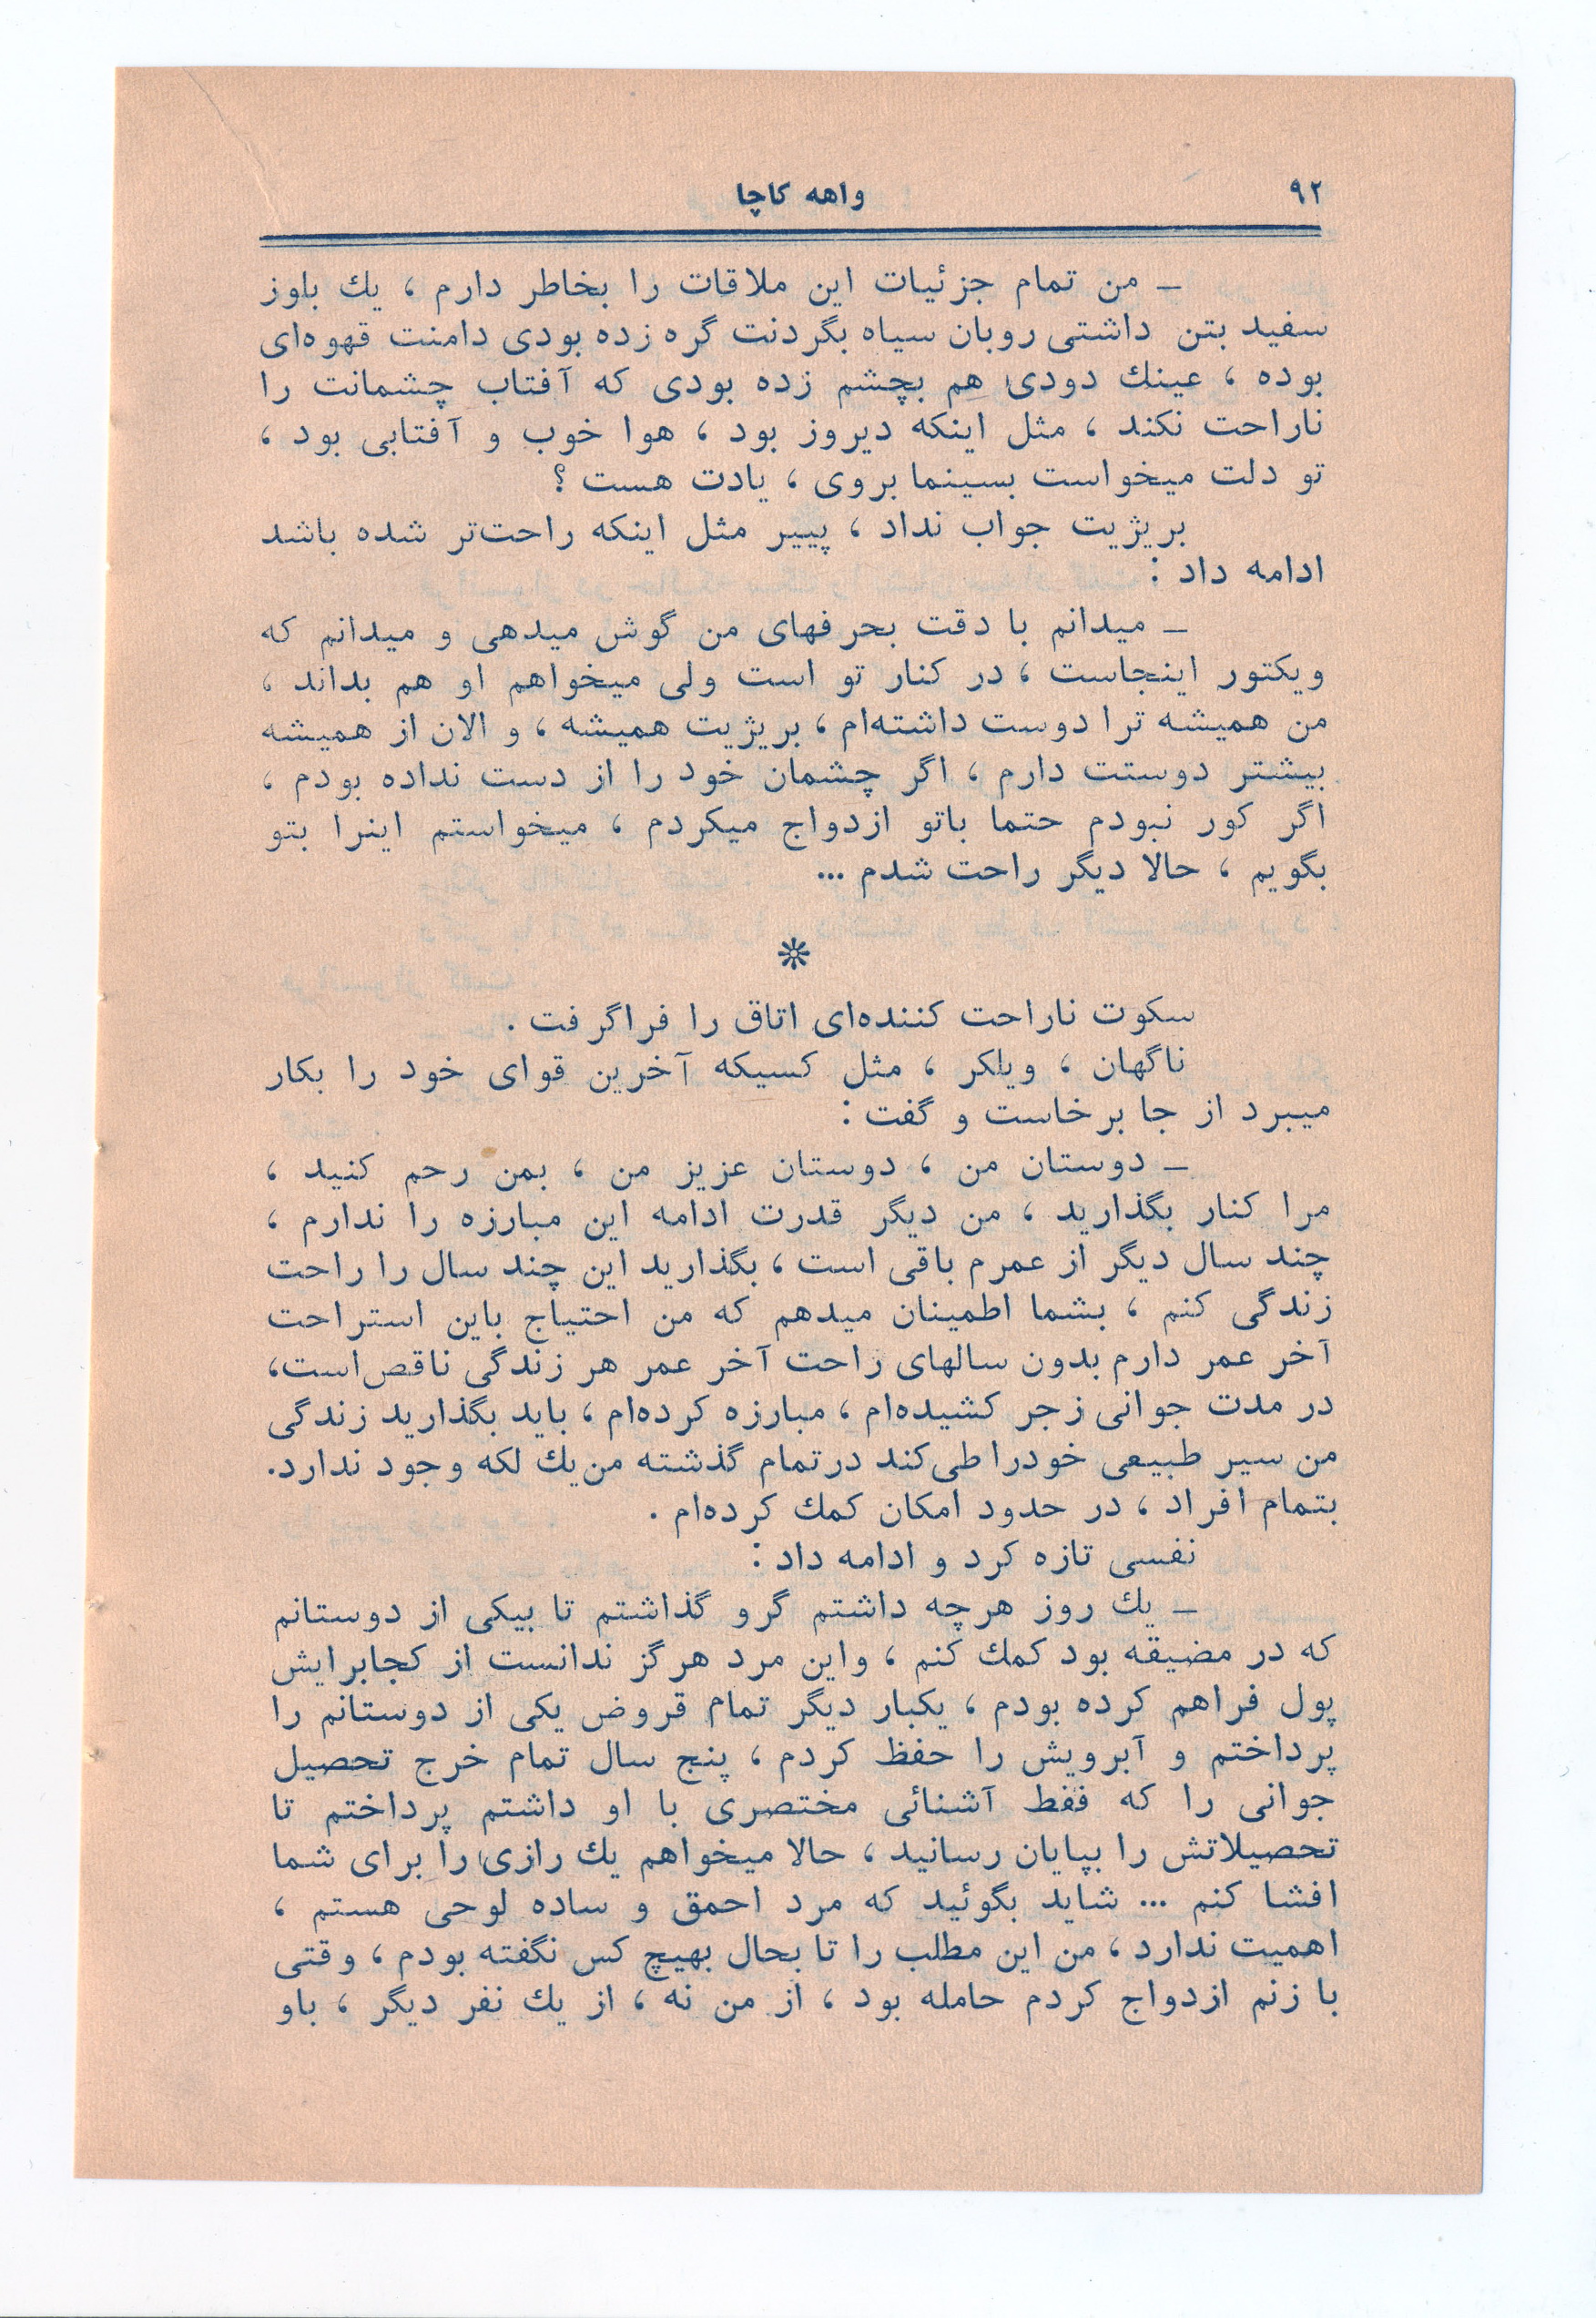 ۹۲
واهه کاچا
ـ من تمام جزئیات این ملاقات را بخاطر دارم ، یك بلوز
سفید بتن داشتی روبان سیاه بگردنت گره زده بودی دامنت قهوه‌ای
بوده ، عینك دودی هم بچشم زده بودی که آفتاب چشمانت را
ناراحت نکند ، مثل اینکه دیروز بود ، هوا خوب و آفتابی بود ،
تو دلت میخواست بسینما بروی ، یادت هست ؟
بریژیت جواب نداد ، پییر مثل اینکه راحت‌تر شده باشد
ادامه داد :
ـ میدانم با دقت بحرفهای من گوش میدهی و میدانم که
ویکتور اینجاست ، در کنار تو است ولی میخواهم او هم بداند ،
من همیشه ترا دوست داشته‌ام ، بریژیت همیشه ، و الان از همیشه
بیشتر دوستت دارم ، اگر چشمان خود را از دست نداده بودم ،
اگر کور نبودم حتما باتو ازدواج میکردم ، میخواستم اینرا بتو
بگویم ، حالا دیگر راحت شدم ...
سکوت ناراحت کننده‌ای اتاق را فراگرفت .
ناگهان ، ویلکر ، مثل کسیکه آخرین قوای خود را بکار
میبرد از جا برخاست و گفت :
ـ دوستان من ، دوستان عزیز من ، بمن رحم کنید ،
مرا کنار بگذارید ، من دیگر قدرت ادامه این مبارزه را ندارم ،
چند سال دیگر از عمرم باقی است ، بگذارید این چند سال را راحت
زندگی کنم ، بشما اطمینان میدهم که من احتیاج باین استراحت
آخر عمر دارم بدون سالهای راحت آخر عمر هر زندگی ناقص‌است،
در مدت جوانی زجر کشیده‌ام ، مبارزه کرده‌ام ، باید بگذارید زندگی
من سیر طبیعی خودراطی‌کند درتمام گذشته من‌یك لکه وجود ندارد.
بتمام افراد ، در حدود امکان کمك کرده‌ام .
نفسی تازه کرد و ادامه داد :
ـ یك روز هرچه داشتم گرو گذاشتم تا بیکی از دوستانم
که در مضیقه بود کمك کنم ، واین مرد هرگز ندانست از کجابرایش
پول فراهم کرده بودم ، یکبار دیگر تمام قروض یکی از دوستانم را
پرداختم و آبرویش را حفظ کردم ، پنج سال تمام خرج تحصیل
جوانی را که فقط آشنائی مختصری با او داشتم پرداختم تا
تحصیلاتش را بپایان رسانید ، حالا میخواهم یك رازی را برای شما
افشا کنم ... شاید بگوئید که مرد احمق و ساده لوحی هستم ،
اهمیت ندارد ، من این مطلب را تا بحال بهیچ کس نگفته بودم ، وقتی
با زنم ازدواج کردم حامله بود ، از من نه ، از یك نفر دیگر ، باو